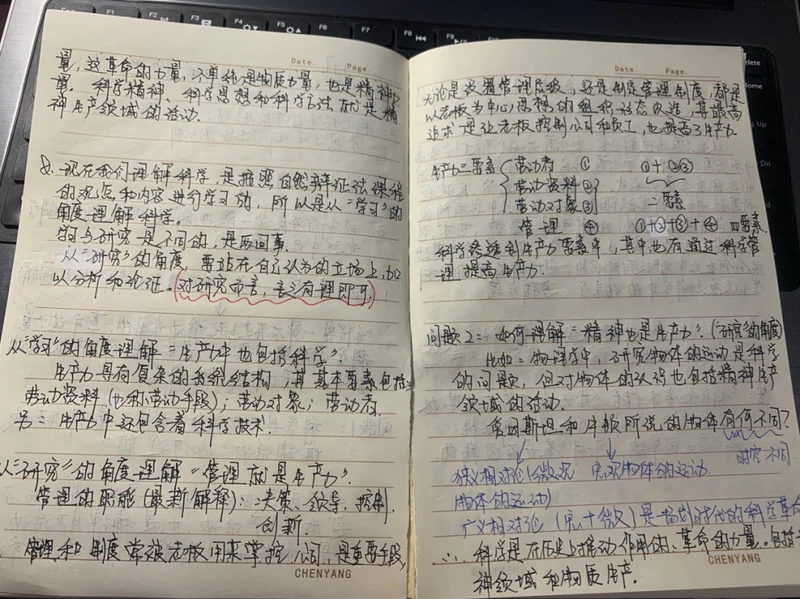 Date. Page.
量，这革命的力量，不单纯是物质力量，也是精神力
量。科学精神、科学思想和科学方法就是精
神生产领域的活动.
8. 现在我们理解科学，是按照自然辩证法课程
的观点和内容进行学习的，所以是从“学习”的
角度理解科学。
学习与研究是不同的，是两回事.
从“研究”的角度，要站在自己认为的立场上，加
以分析和论证。对研究而言，言之有理即可.
从“学习”的角度理解“生产力中也包括科学”.
生产力具有复杂的系统结构，其基本要素包括:
劳动资料(也称劳动手段)；劳动对象；劳动者.
另：生产力中还包含着科学技术.
从“研究”的角度理解“管理就是生产力”.
管理的职能(最新解释)：决策、领导、控制、
创新
管理和制度常被老板用来掌控公司，是重要手段,
CHENYANG
Date. Page.
无论是设置管理层级，还是制度管理制度，都是
以老板为中心思想的组织形态改造，其最高
追求是让老板控制公司和员工，也提高了生产力.
生产力二要素 劳动者 ① ①+②③
劳动资料②
劳动对象③ 二要素
管理 ④ ①+②+③+④ 四要素
科学渗透到生产力要素中，其中也有通过科学管
理提高生产力.
问题2：如何理解“精神也是生产力”.(“研究”的角度)
比如：物理学中，研究物体的运动是科学
的问题，但对物体的认识也包括精神生产
领域的活动.
爱因斯坦和牛顿所说的物体有何不同?
狭义相对论(微观 宏观物体的运动 时空不同
物体的运动)
广义相对论(宏+微) 是划时代的科学革命
∴ 科学是在历史上推动作用的、革命的力量。包括
神领域和物质生产.
CHENYANG